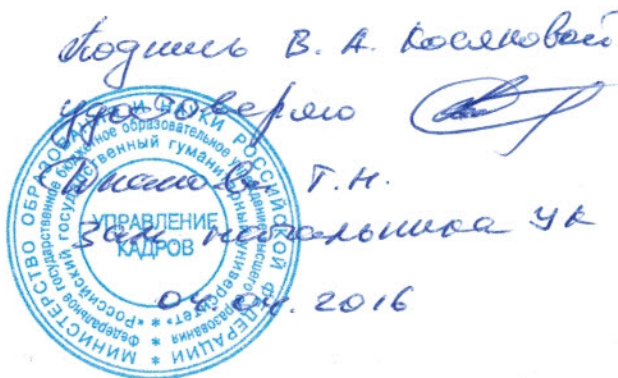 Подпись В. А. Косяковой
удостоверяю
Т.Н.
Зам начальника УК
04.04.2016
МИНИСТЕРСТВО ОБРАЗОВАНИЯ И НАУКИ РОССИЙСКОЙ ФЕДЕРАЦИИ
Федеральное государственное бюджетное образовательное учреждение высшего образования
«Российский государственный гуманитарный университет»
УПРАВЛЕНИЕ
КАДРОВ